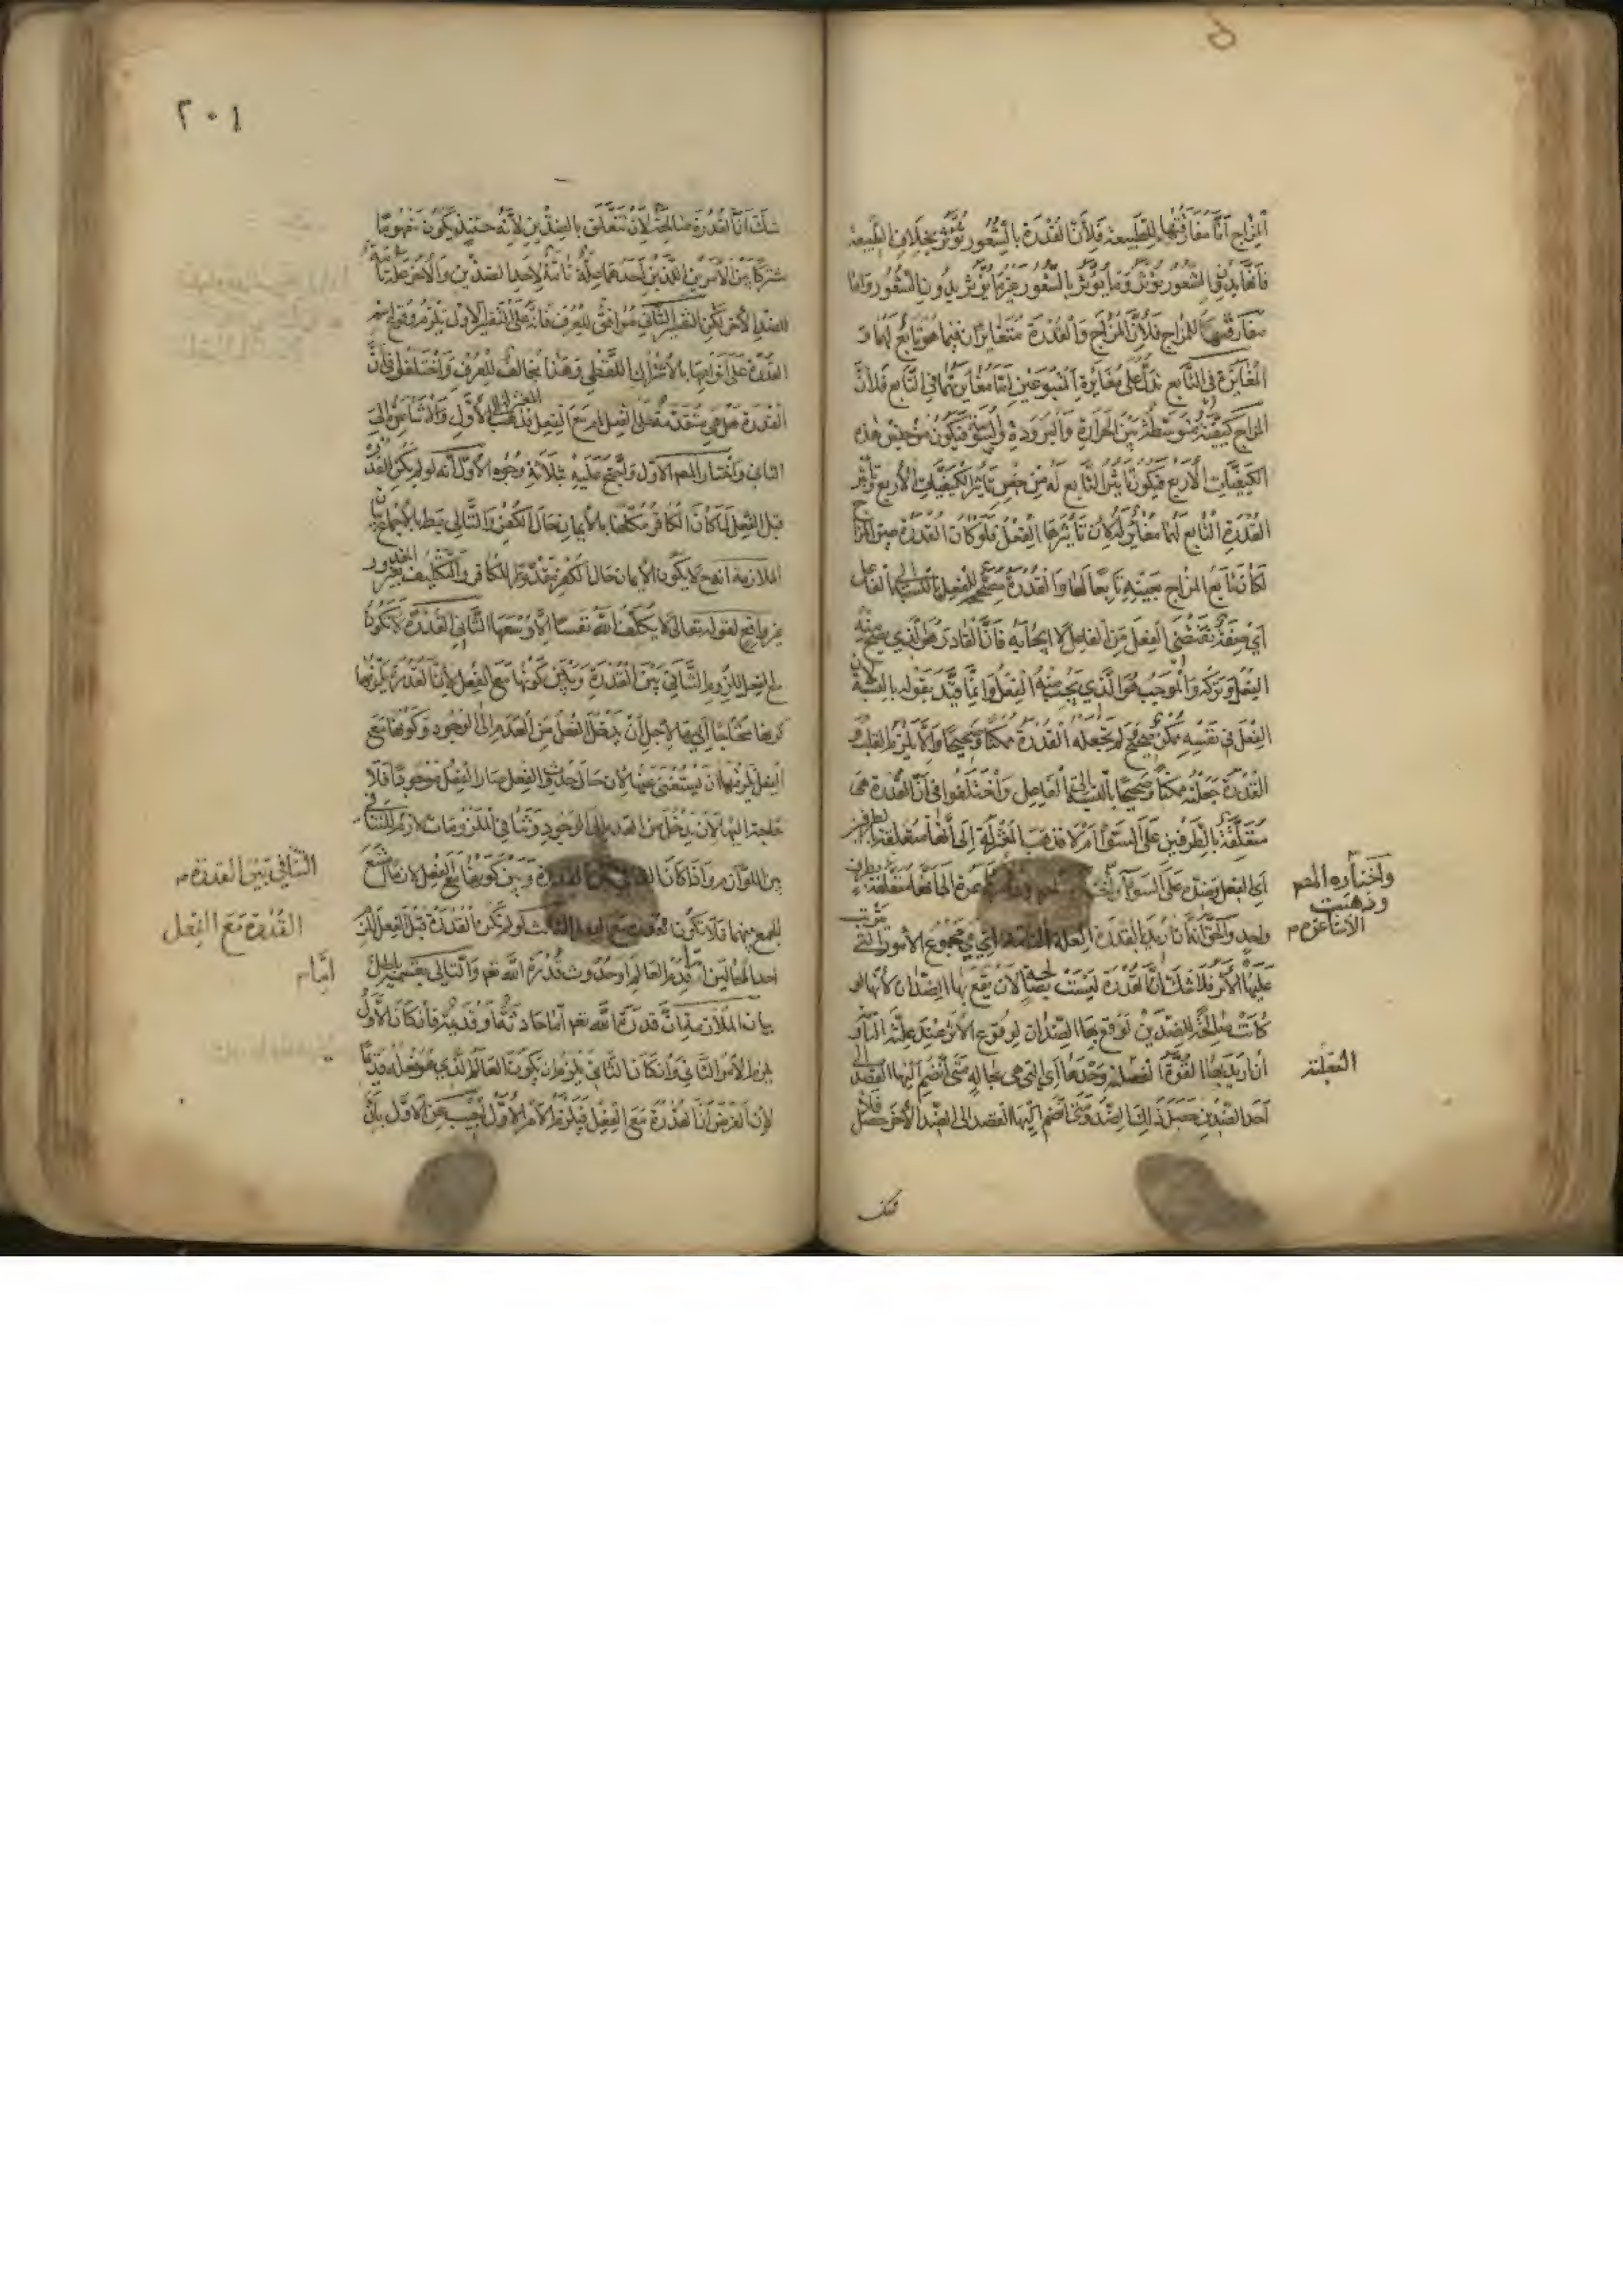 المزاج اما مفارقتها للطبيعة فلان القدرة بالشعور تؤثر بخلاف الطبيعة
فانها بدون الشعور تؤثر وما يؤثر بالشعور غير ما يؤثر بدون الشعور واما
مفارقتها للمزاج فلان المزاج والقدرة متغايران فيما هو تابع لهما و
المغايرة في التابع تدل على مغايرة المتبوعين اما مغايرتهما في التابع فلان
المزاج كيفية متوسطة بين الحرارة والبرودة فيكون من جنس هذه
الكيفيات الاربع فيكون تاثير التابع له من جنس تاثير الكيفيات الاربع وتاثير
القدرة التابع لها مغاير له لان تاثيرها الفعل فلو كان القدرة عين المزاج
لكان تابع المزاج بعينه تابعا لها والقدرة مصحح للفعل بالنسبة الى الفاعل
اي صفة تقتضي الفعل من الفاعل لا ايجابه فان القادر هو الذي يصح منه
الفعل وتركه والموجب هو الذي يجب منه الفعل وانما قيد بقوله بالنسبة لان
الفعل في نفسه ممكن صحيح لم تجعله القدرة ممكنا وصحيحا والا يلزم القلب و
القدرة جعلته ممكنا وصحيحا بالنسبة الى الفاعل واختلفوا في ان القدرة هي
متعلقة بالطرفين على السوى ام لا فذهب المعتزلة الى انها متعلقة بطرفين
اي الفعل وضده على السوى واختاره المصم وذهبت الاشاعرة الى انها متعلقة بطرف
واحد والحق انه ان اريد بالقدرة العلة التامة اي مجموع الامور التي يترتب
عليها الاثر فلا شك ان القدرة ليست بصالحة لان يقع بها الضدان لانها لو
كانت صالحة للضدين لوقع بها الضدان لوقوع الاثر عند علته التامة و
ان اريد بها القوة العضلية وحدها اي التي هي بحالة متى انضم اليها القصد الى
احد الضدين حصل ذلك الضد ومتى انضم اليها القصد الى الضد الاخر حصل فلا
واختاره المصم
وذهبت
الاشاعرة م
العضلية
فشك
٢٠١
شك ان القدرة صالحة لان تتعلق بالضدين لانه حينئذ يكون مفهوما
مشتركا بين الامرين اللذين احدهما علة تامة لاحد الضدين والاخر علة تامة
للضد الاخر لكن التفسير الثاني موافق للعرف فانه على التفسير الاول يلزم وقوع اسم
القدرة على انواعها بالاشتراك اللفظي وهذا يخالف للعرف واختلفوا في ان
القدرة هل هي متقدمة على الفعل ام مع الفعل فذهب المعتزلة الى الاول والاشاعرة الى
الثاني واختار المصم الاول واحتج عليه بثلاثة وجوه الاول انه لو لم يكن القدرة
قبل الفعل لما كان الكافر مكلفا بالايمان حال الكفر والتالي بط بالاجماع بيان
الملازمة انه ح لا يكون الايمان حال الكفر مقدورا للكافر والتكليف بغير المقدور
غير واقع لقوله تعالى لا يكلف الله نفسا الا وسعها الثاني القدرة لا تكون
مع الفعل للزوم التنافي بين القدرة وبين كونها مع الفعل لان القدرة يلزمها
كونها محتاجا اليها لاجل ان يدخل الفعل من العدم الى الوجود وكونها مع
الفعل يلزمها ان يستغنى عنها لان حال حدوث الفعل صار الفعل موجودا فلا
حاجة اليها لان يدخل من العدم الى الوجود وتنافي الملزومات لازم للتنافي في
بين اللوازم واذا كان التنافي بين القدرة وبين كونها مع الفعل لازما امتنع
الجمع بينهما فلا تكون القدرة مع الفعل الثالث لو لم تكن القدرة قبل الفعل لزم
احد المحالين اما قدم العالم او حدوث قدرة الله تعم والتالي بقسميه باطل
بيان الملازمة ان قدرة الله تعم اما حادثة او قديمة فان كان الاول
يلزم الامر الثاني وان كان الثاني يلزم ان يكون العالم الذي هو فعله قديما
لان الفرض ان القدرة مع الفعل فيلزم الامر الاول اجيب عن الاول بان
التنافي بين القدرة م
القدرة مع الفعل
اما م